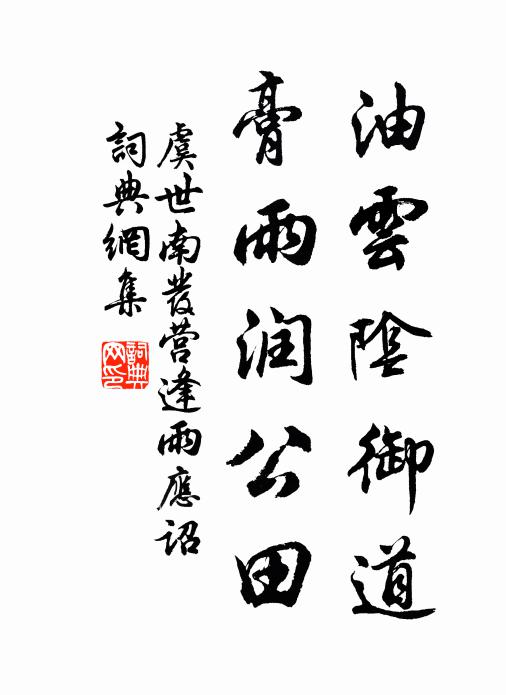 油雲陰御道
膏雨润公田
虞世南發营逢雨應詔
詞典網集
詞典
网印